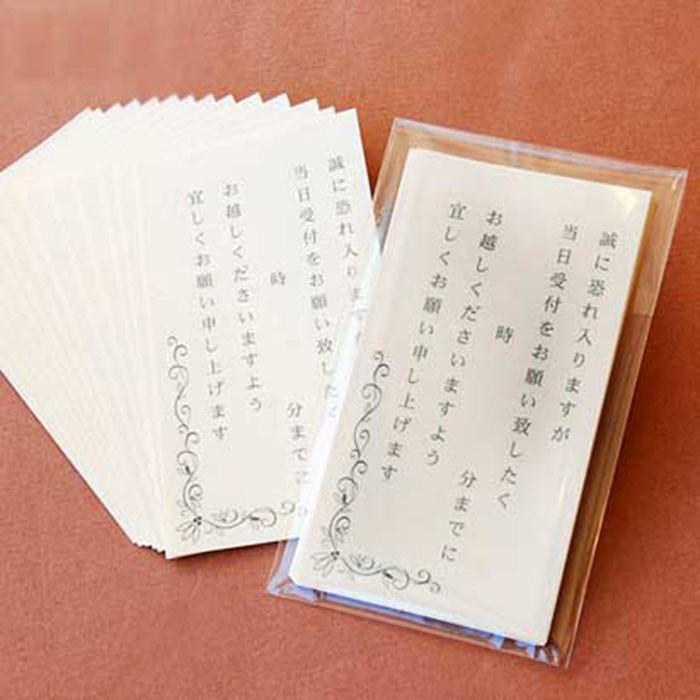 誠に恐れ入りますが
当日受付をお願い致したく
時
分までに
お越しくださいますよう
宜しくお願い申し上げます
誠に恐れ入ります
当日受付をお願い致したく
時
分までに
お越しくださいますよう
宜しくお願い申し上げます